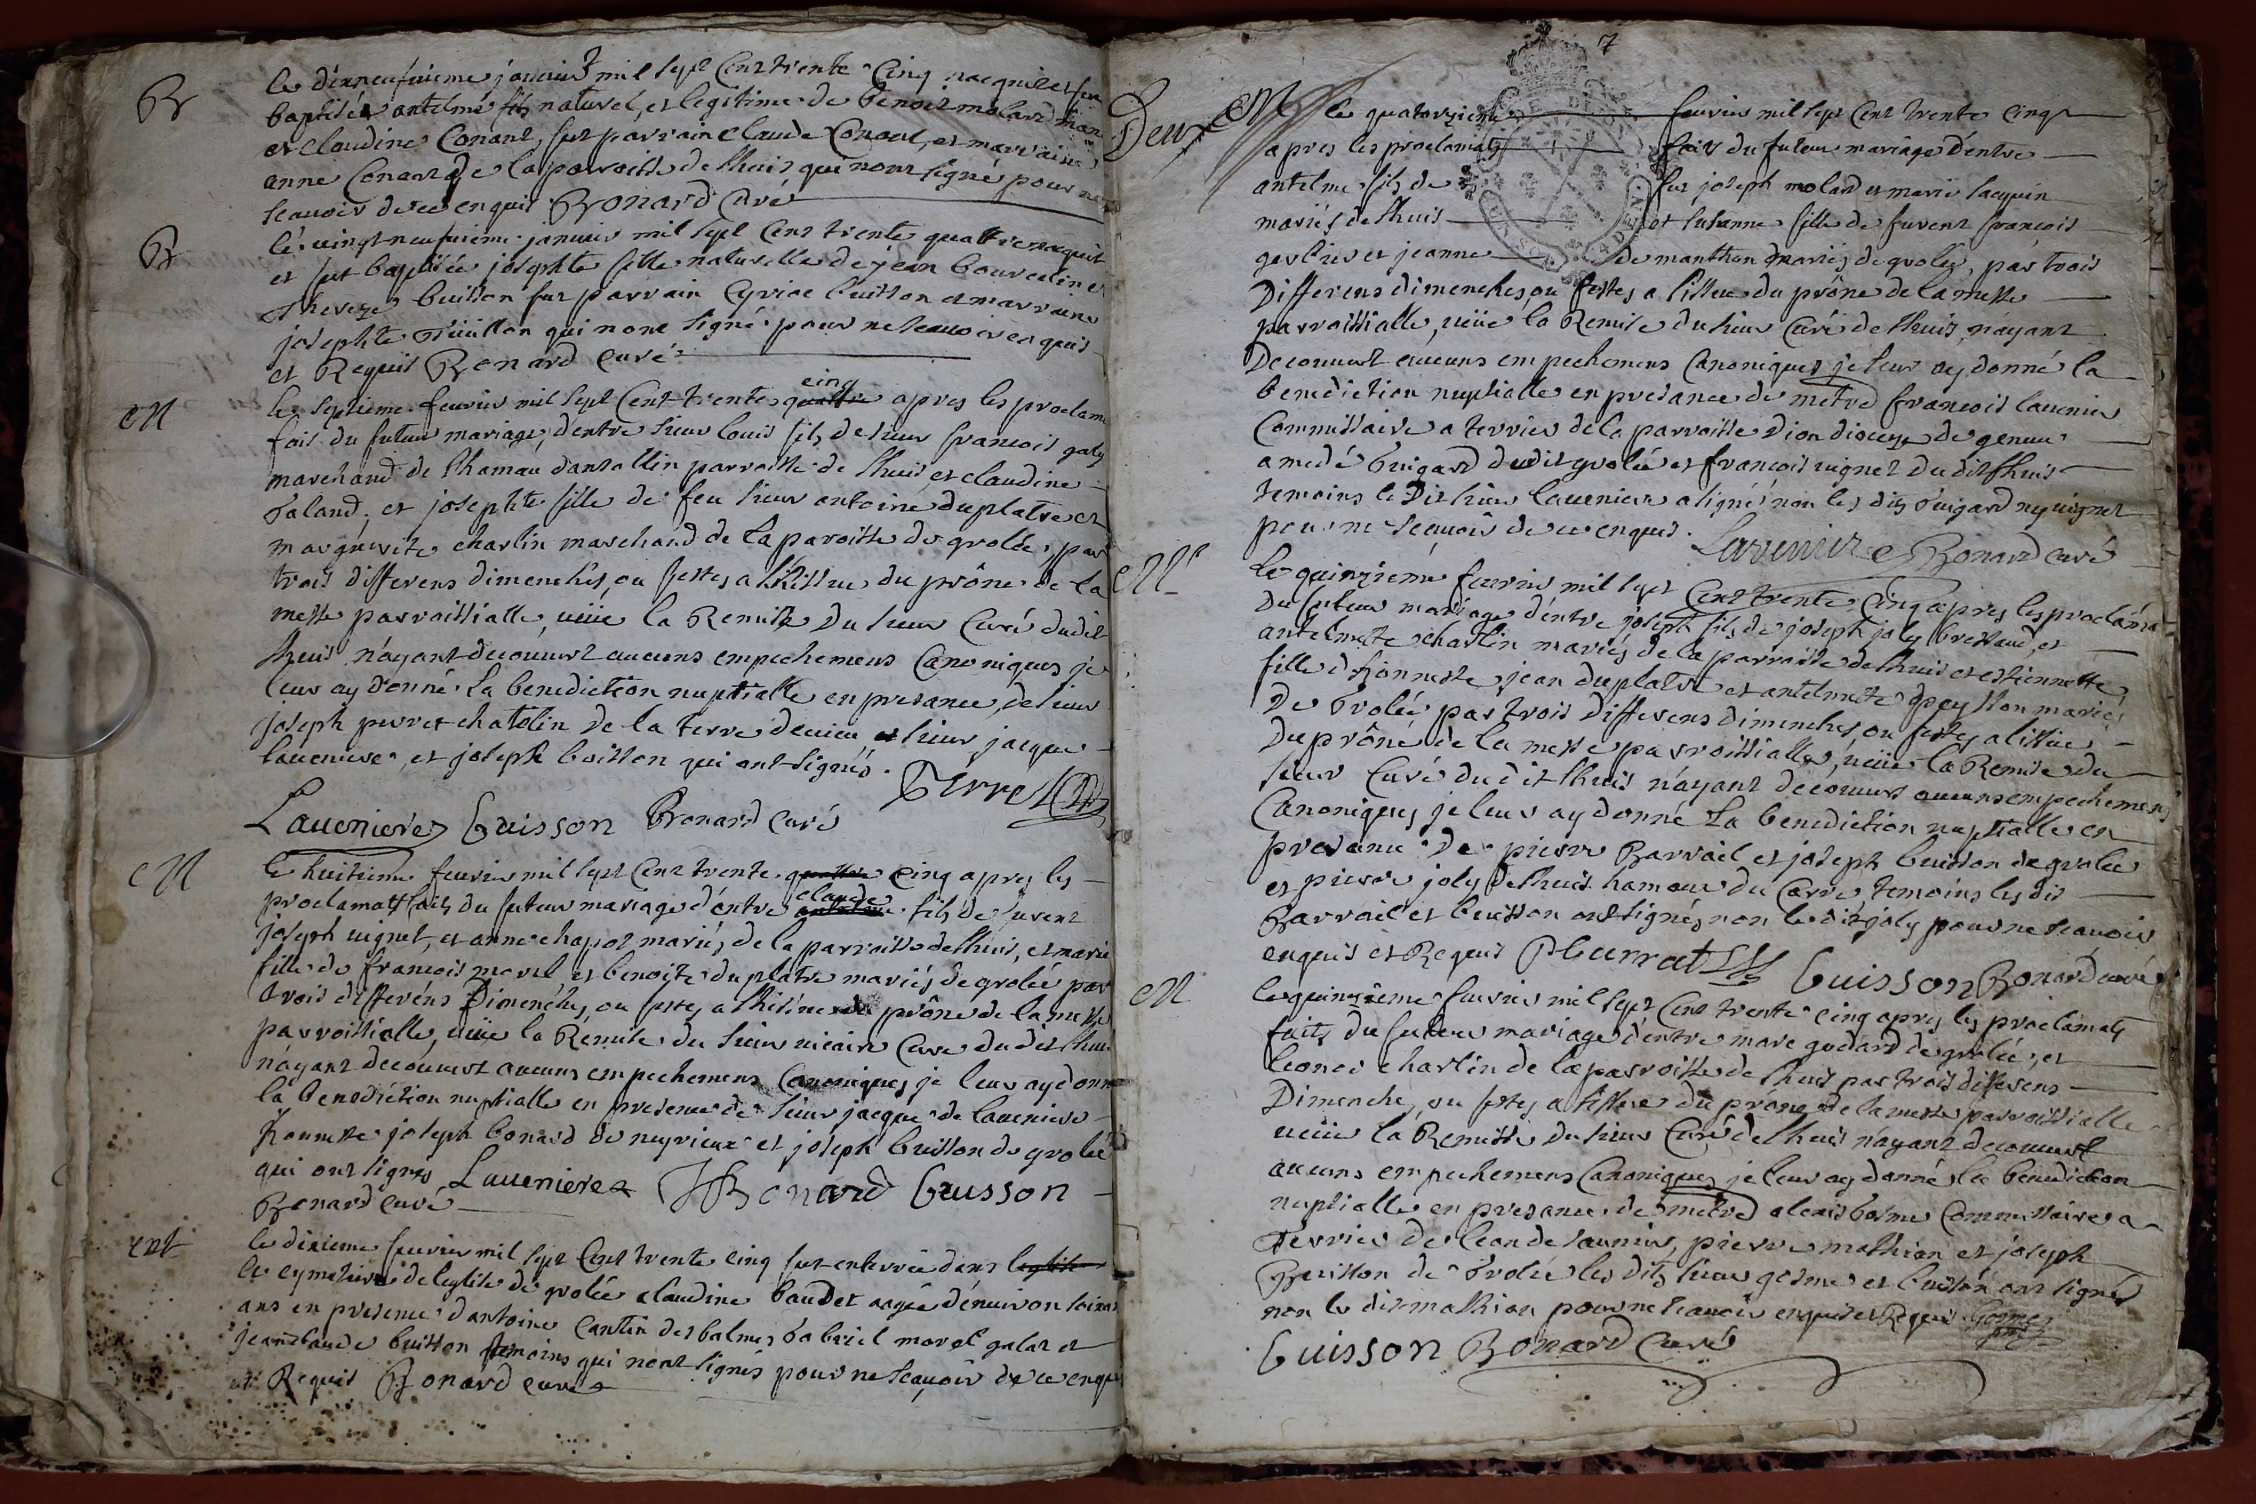 B
le dixneufuieme januier mil sept Cent trente Cinq nacquit et fut
baptisée antelme fils naturel, et legitime de benoit molard
et claudine Conant, fut parrain claude Conant, et marraine
anne Conant de la parroisse de lhuis qui nont signé pour ne
scauoir de ce enquis Bonard Curé
B
le uingt neufuieme januier mil sept Cent trente quattre nacquit
et fut baptisée josephte fille naturelle de jean bourcelin et
Thereze buisson fut parrain Cyriac buisson et marraine
josephte qui nont signé pour ne scauoir enquis
et Requis Bonard curé
M
le septieme feurier mil sept Cent trente quattre cinq apres les proclama
fais du futeur mariage, dentre sieur louis fils de sieur francois galy
marchand de lhamau dansollin parroisse de lhuis et claudine
; et josephte fille de feu sieur antoine duplatre et
marguerite charlin marchand de la paroisse de grolée, par
trois differens dimenches, ou festes a lissue du prône de la
messe parroissialle, ueüe la Remise du sieur Curé dudit
lhuis n'ayant decouuert aucuns empechemens Canoniques je
leur ay donné la benediction nuptialle en presance, de sieur
joseph perret chatelin de la terre et sieur jacque
laueniere, et joseph buisson qui ont signés. Perret
Lauenieres Buisson Bonard Curé
M
le huitieme feurier mil sept Cent trente quattre cinq apres les
proclamats faits du futeur mariage d'entre antelme claude fils de furent
joseph uignet, et anne chapot mariés de la parroisse de lhuis, et marie
fille de francois morel et benoite duplatre mariés de grolée par
trois differéns Dimenches, ou festes a lissue du prône de la messe
parroissialle, ueüe la Remise du sieur uicaire Curé du dit lhuis
n'ayant decouuert aucuns empechemens Canoniques je leur ay donné
la benediction nuptialle en presence de sieur jacque de lauenière
honneste joseph bonard de neyrieux et joseph buisson de grolée
qui ont signés Lauenieres JBonard Buisson
Bonard Curé
ent
le dixieme feurier mil sept Cent trente cinq fut enterrée dans leglise
le cymetiere de leglise de grolée claudine baudet aagée d'enuiron
ans en presence d'antoine Cantin des balmes Gabriel morel galat et
jean claude buisson temoins qui nont signés pour ne scauoir de ce enquis
et Requis Bonard curé
7
Deux
M
le quatorzieme feurier mil sept Cent trente cinq
apres les proclamats fais du futeur mariage d'entre
antelme fils de fut joseph molard et marie jacquin
mariés de lhuis et susanne fille de furent francois
et jeanne de manthon mariés de grolée, par trois
Differens dimenches, ou festes a lissue du prône de la messe
parroissialle, ueüe la Remise du sieur Curé de lhuis n'ayant
Decouuert aucuns empechemens Canoniques je leur ay donné la
benediction nuptialle en presance de metre francois lauenier
Commissaire a terrier de la parroisse Dion dioceze de geneue
amedé Guigard dudit grolée et francois uignet du dit lhuis
temoins le Dit sieur lauenier a signé non les dits Guigard ny uignet
pour ne scauoir de ce enquis. Lavenier Bonard curé
M
Le quinzieme feurier mil sept Cent trente Cinq apres les proclama
Du futeur mariage d'entre joseph fils de joseph joly bressand, et
antelmette charlin mariés de la parroisse de lhuis et estiennette
fille d'honneste jean duplatre et antelmette peysson mariés
De Grolée par trois differens dimenches, ou festes a lissue
Du prône de la messe parroissialle, ueüe la Remise du
sieur Curé du dit lhuis n'ayant decouuert aucuns empechemens
Canoniques je leur ay donné La benediction nuptialle en
presance de pierre Barrail et joseph buisson de grolée
et pierre joly de lhuis hameau du Carre, temoins les dis
Barrail et buisson ont signés non le dit joly pour ne scauoir
enquis et Requis Buisson Bonard curé
M
le quinzieme feurier mil sept Cent trente cinq apres les proclamats
faits du futeur mariage d'entre marc godard de grolée, et
leonce charlin de la parroisse de lhuis par trois differens
Dimenche, ou festes a lissue du prone de la messe parroissialle
ueüe la Remisse du sieur Curé de lhuis n'ayant decouuert
aucuns empechemens Canoniques je leur ay donné la benediction
nuptialle en presance de metre alexis gosme Commissaire a
terrier de , pierre mathian et joseph
Buisson de Grolée les dits sieur gosme et buisson ont signés
non le dit mathian pour ne scauoir enquis et Requis Gosme
Buisson Bonard Curé